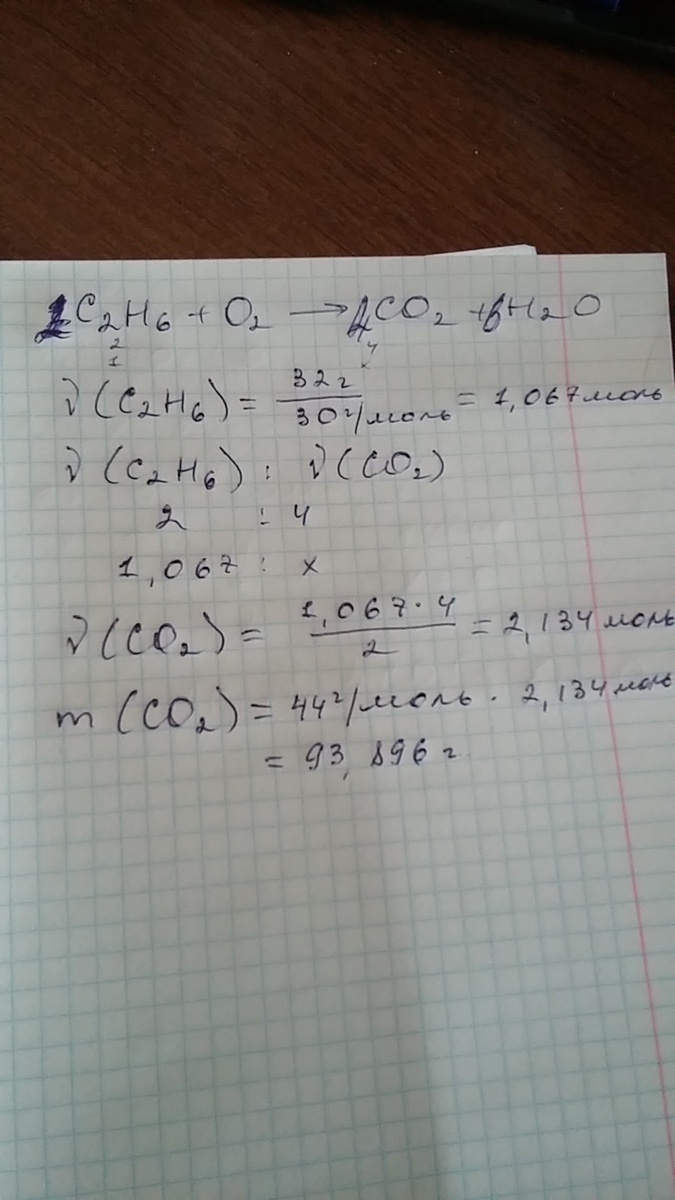 2C₂H₆ + O₂ → 4CO₂ + 6H₂O
2 4
1 x
ν(C₂H₆) = 32г / 30г/моль = 1,067 моль
ν(C₂H₆) : ν(CO₂)
2 : 4
1,067 : x
ν(CO₂) = 1,067 · 4 / 2 = 2,134 моль
m(CO₂) = 44г/моль · 2,134 моль
= 93,896 г